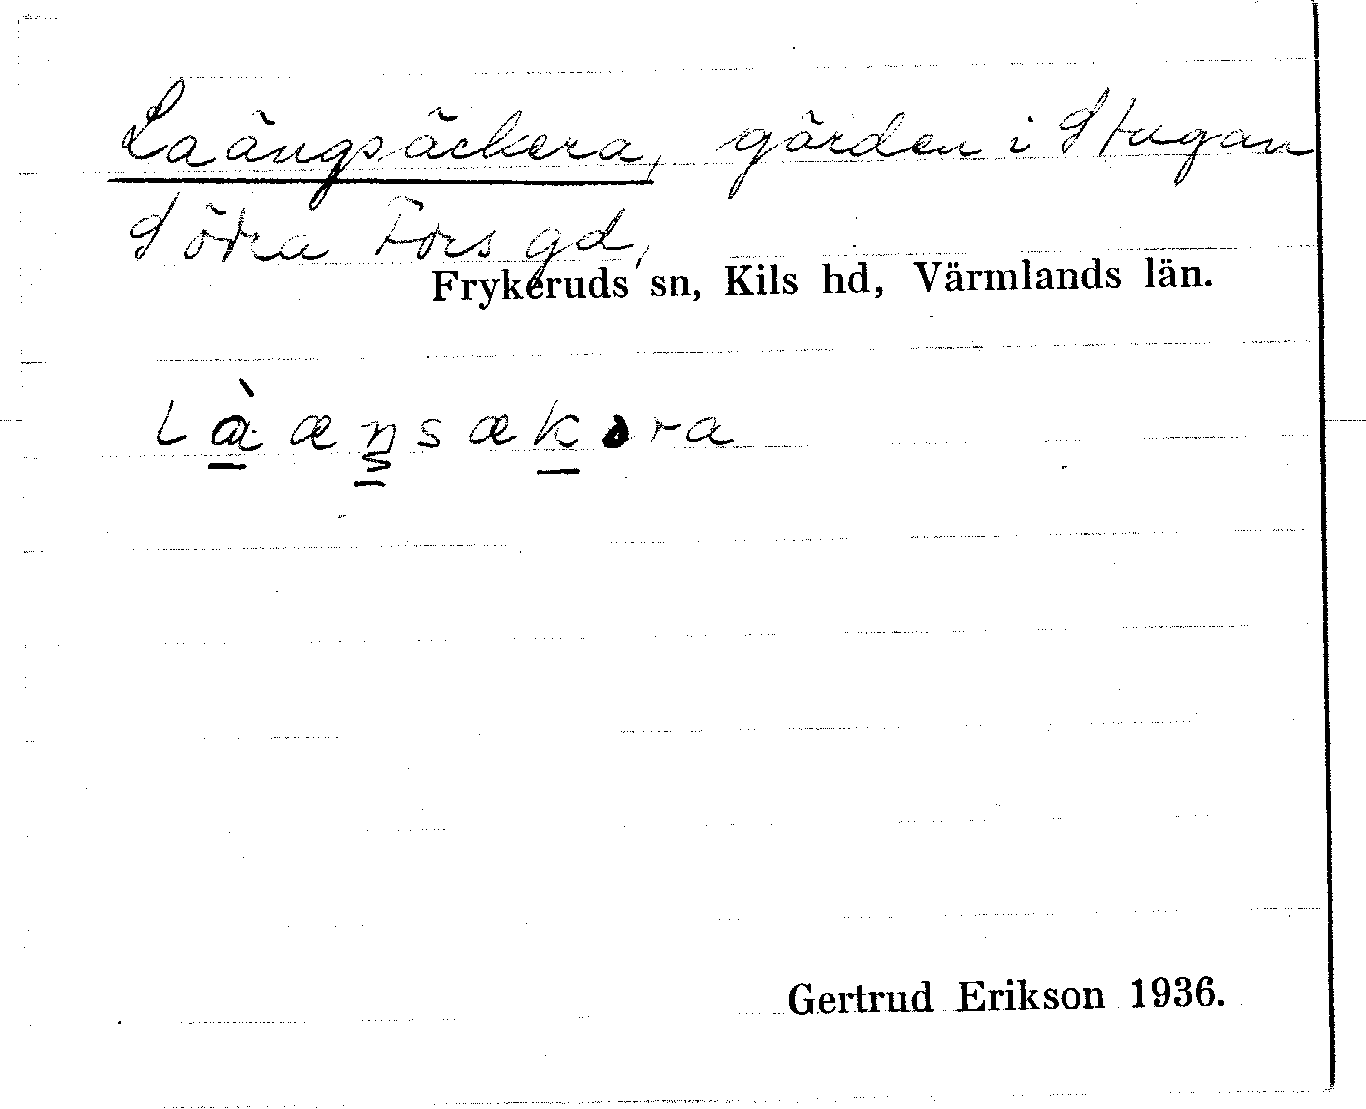 Laängsäckera, gärden i Stugan
Södra Fors gd,
Frykeruds sn, Kils hd, Värmlands län.
Làænsækəra
Gertrud Erikson 1936.